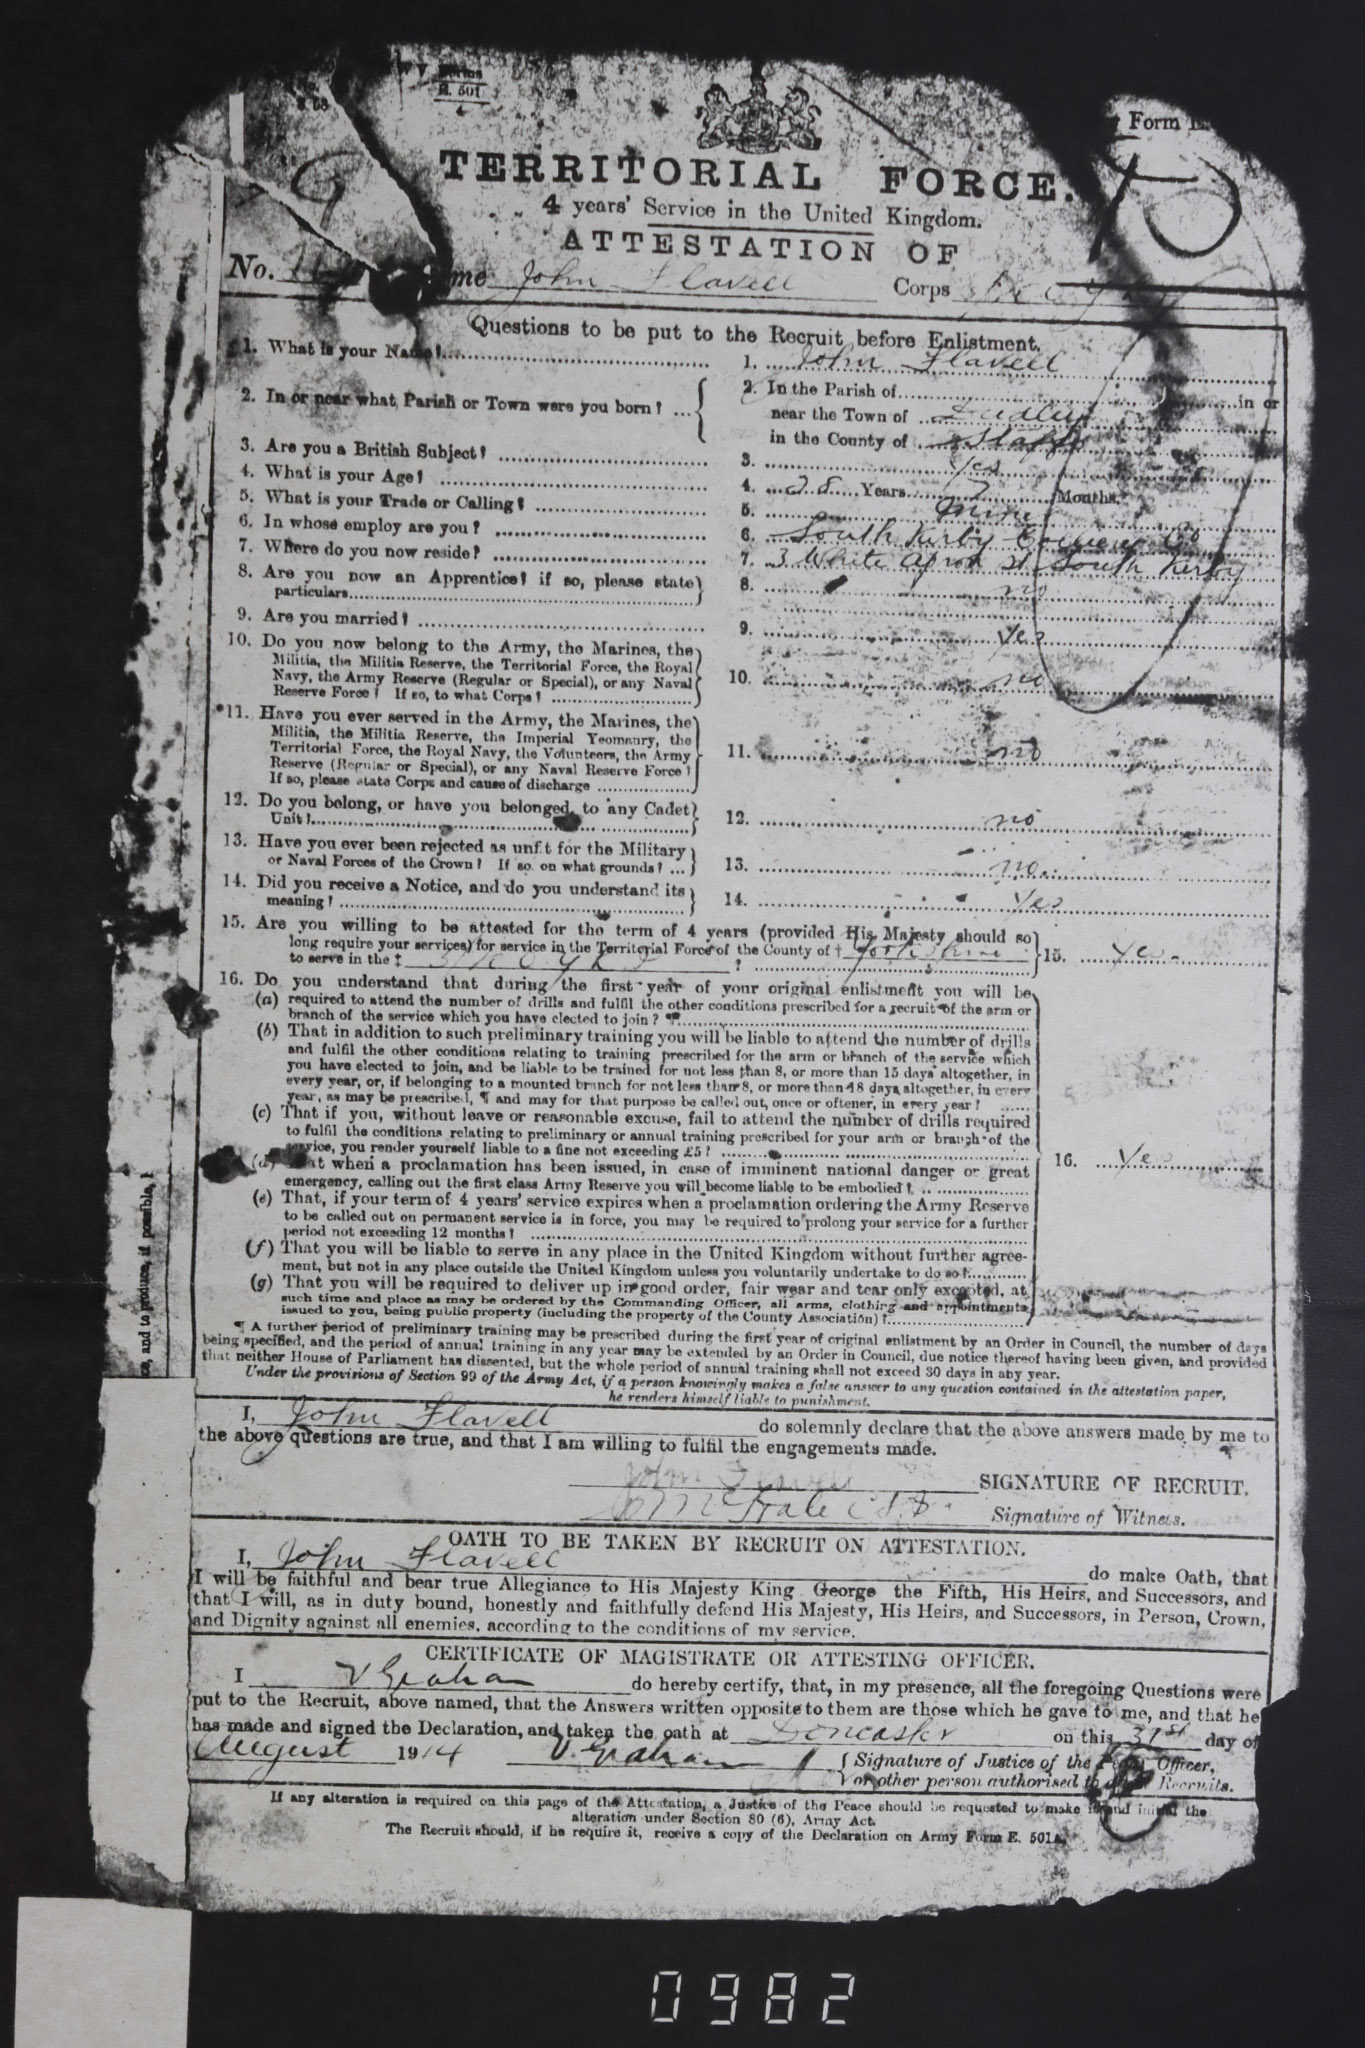 Form
TERRITORIAL FORCE.
4 years' Service in the United Kingdom.
ATTESTATION OF
No. John Flavell Corps
Questions to be put to the Recruit before Enlistment.
1. What is your Name? 1. John Flavell
2. In or near what Parish or Town were you born? 2. In the Parish of in or
near the Town of Dudley
in the County of Staffs
3. Are you a British Subject? 3. Yes
4. What is your Age? 4. 28 Years 7 Months.
5. What is your Trade or Calling? 5. Miner
6. In whose employ are you? 6. South Kirby Colliery Co
7. Where do you now reside? 7. 3 White Apron St South Kirby
8. Are you now an Apprentice? if so, please state
particulars 8. no
9. Are you married? 9. Yes
10. Do you now belong to the Army, the Marines, the
Militia, the Militia Reserve, the Territorial Force, the Royal
Navy, the Army Reserve (Regular or Special), or any Naval
Reserve Force? If so, to what Corps? 10. no
*11. Have you ever served in the Army, the Marines, the
Militia, the Militia Reserve, the Imperial Yeomanry, the
Territorial Force, the Royal Navy, the Volunteers, the Army
Reserve (Regular or Special), or any Naval Reserve Force?
If so, please state Corps and cause of discharge 11. no
12. Do you belong, or have you belonged, to any Cadet
Unit? 12. no
13. Have you ever been rejected as unfit for the Military
or Naval Forces of the Crown? If so on what grounds? 13. no.
14. Did you receive a Notice, and do you understand its
meaning? 14. Yes
15. Are you willing to be attested for the term of 4 years (provided His Majesty should so
long require your services) for service in the Territorial Force of the County of † Yorkshire
to serve in the ‡ ? 15. Yes.
16. Do you understand that during the first year of your original enlistment you will be
(a) required to attend the number of drills and fulfil the other conditions prescribed for a recruit of the arm or
branch of the service which you have elected to join? ¶
(b) That in addition to such preliminary training you will be liable to attend the number of drills
and fulfil the other conditions relating to training prescribed for the arm or branch of the service which
you have elected to join, and be liable to be trained for not less than 8, or more than 15 days altogether, in
every year, or, if belonging to a mounted branch for not less than 8, or more than 18 days altogether, in every
year, as may be prescribed, ¶ and may for that purpose be called out, once or oftener, in every year?
(c) That if you, without leave or reasonable excuse, fail to attend the number of drills required
to fulfil the conditions relating to preliminary or annual training prescribed for your arm or branch of the
service, you render yourself liable to a fine not exceeding £5?
(d) That when a proclamation has been issued, in case of imminent national danger or great 16. Yes
emergency, calling out the first class Army Reserve you will become liable to be embodied?
(e) That, if your term of 4 years' service expires when a proclamation ordering the Army Reserve
to be called out on permanent service is in force, you may be required to prolong your service for a further
period not exceeding 12 months?
(f) That you will be liable to serve in any place in the United Kingdom without further agree-
ment, but not in any place outside the United Kingdom unless you voluntarily undertake to do so?
(g) That you will be required to deliver up in good order, fair wear and tear only excepted, at
such time and place as may be ordered by the Commanding Officer, all arms, clothing and appointments
issued to you, being public property (including the property of the County Association)?
¶ A further period of preliminary training may be prescribed during the first year of original enlistment by an Order in Council, the number of days
being specified, and the period of annual training in any year may be extended by an Order in Council, due notice thereof having been given, and provided
that neither House of Parliament has dissented, but the whole period of annual training shall not exceed 30 days in any year.
Under the provisions of Section 99 of the Army Act, if a person knowingly makes a false answer to any question contained in the attestation paper,
he renders himself liable to punishment.
and to produce, if possible,
I, John Flavell do solemnly declare that the above answers made by me to
the above questions are true, and that I am willing to fulfil the engagements made.
John Flavell SIGNATURE OF RECRUIT.
Signature of Witness.
OATH TO BE TAKEN BY RECRUIT ON ATTESTATION.
I, John Flavell do make Oath, that
I will be faithful and bear true Allegiance to His Majesty King George the Fifth, His Heirs, and Successors, and
that I will, as in duty bound, honestly and faithfully defend His Majesty, His Heirs, and Successors, in Person, Crown,
and Dignity against all enemies, according to the conditions of my service.
CERTIFICATE OF MAGISTRATE OR ATTESTING OFFICER.
I V Graham do hereby certify, that, in my presence, all the foregoing Questions were
put to the Recruit, above named, that the Answers written opposite to them are those which he gave to me, and that he
has made and signed the Declaration, and taken the oath at Doncaster on this 31st day of
August 1914 V. Graham Signature of Justice of the Peace Officer,
or other person authorised to Recruits.
If any alteration is required on this page of the Attestation, a Justice of the Peace should be requested to make it and initial the
alteration under Section 80 (6), Army Act.
The Recruit should, if he require it, receive a copy of the Declaration on Army Form E. 501A.
0982